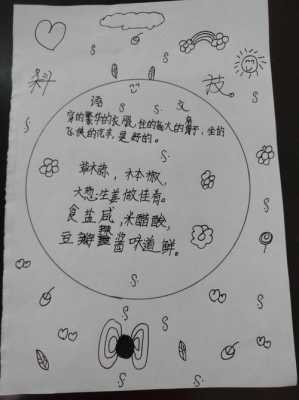 科 技
语 文
穿的繁华的衣服,住的极大的房子,坐的
飞快的汽车,是野的。
草木麻,木本椒,
大葱生姜做佳肴。
食盐咸,米醋酸,
豆瓣辣酱味道鲜。